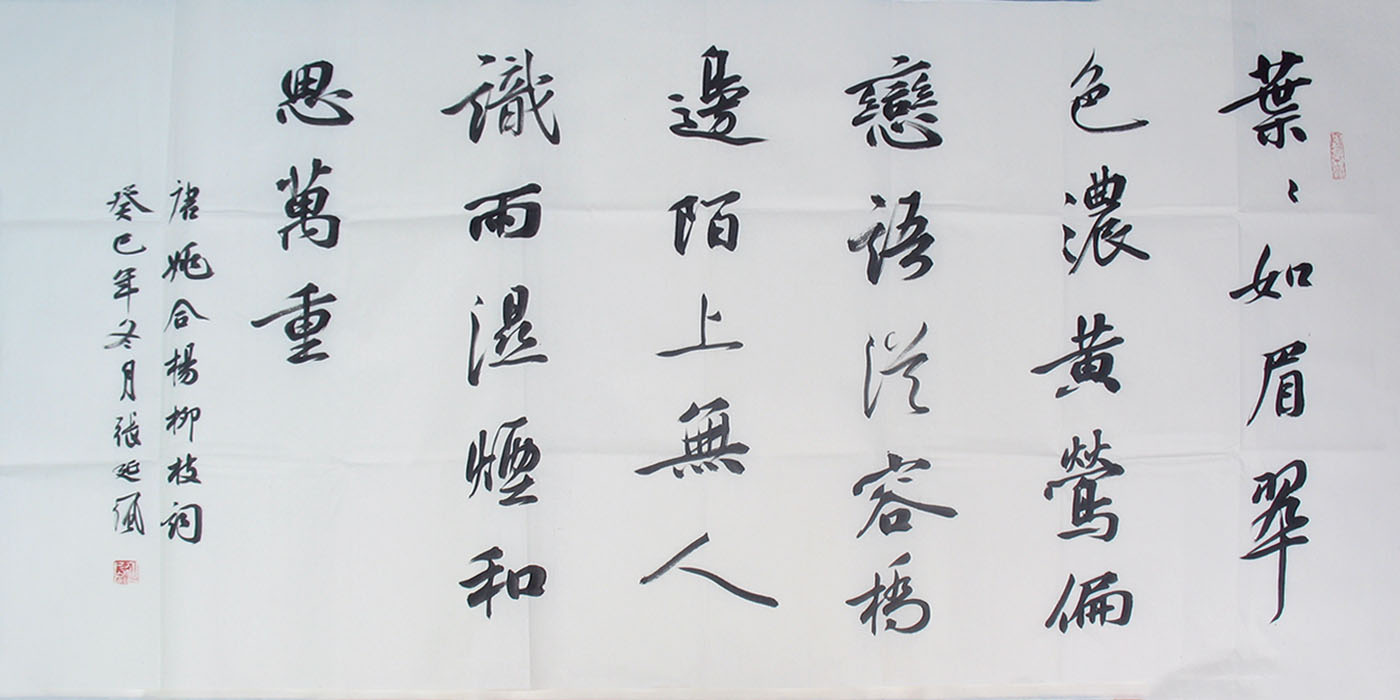 葉〻如眉翠
色濃黃鶯偏
戀語從容橋
邊陌上無人
識雨濕煙和
思萬重
唐姚合楊柳枝詞
癸巳年冬月張延佩